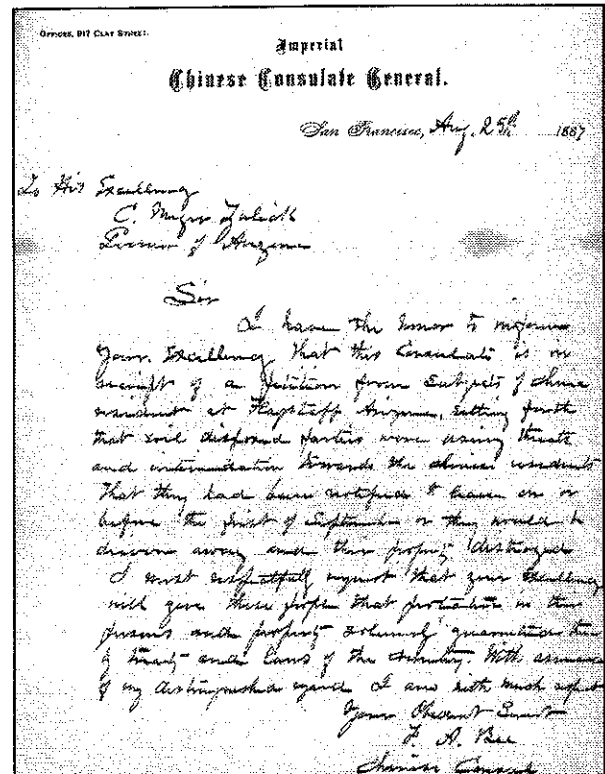 OFFICES, 917 CLAY STREET.
Imperial
Chinese Consulate General.
San Francisco, Aug. 25th 1887
To His Excellency
C. Meyer Zulick
Governor of Arizona
Sir
I have the honor to inform
Your Excellency that this Consulate is in
receipt of a petition from Subjects of China
resident at Flagstaff Arizona, setting forth
that evil disposed parties were using threats
and intimidation towards the Chinese residents
That they had been notified to leave on or
before the first of September or they would be
driven away and their property destroyed
I most respectfully request that your Excellency
will give these people that protection in their
persons and property solemnly guaranteed them
by treaty and laws of the Country. With assurance
of my distinguished regard I am with much respect
Your Obedient Servant
F. A. Bee
Chinese Consul